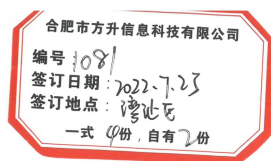 合肥市方升信息科技有限公司
编号：1081
签订日期：2022.7.25
签订地点：湾沚区
一式4份，自有2份